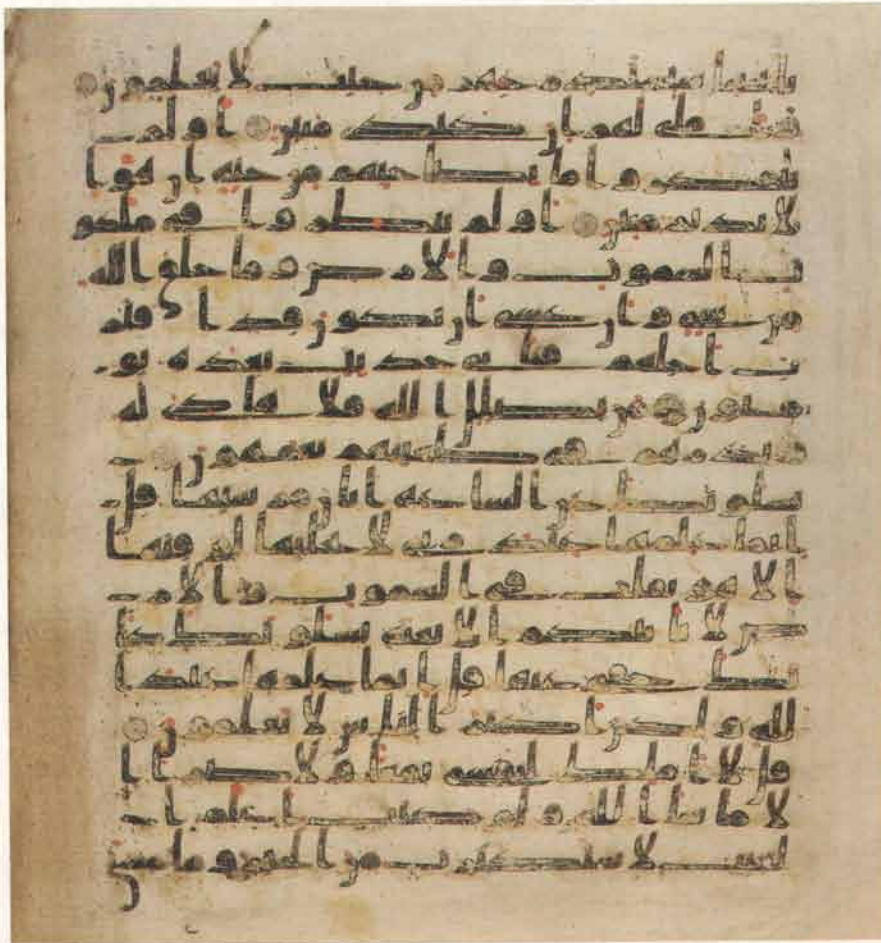 بايتنا سنستدرجهم من حيث لا يعلمون
واملي لهم ان كيدي متين اولم
يتفكروا ما بصاحبهم من جنة ان هو ا
لا نذير مبين اولم ينظروا في ملكو
ت السموت والارض وما خلق الله
من شيء وان عسى ان يكون قد اقتر
ب اجلهم فباي حديث بعده يو
منون من يضلل الله فلا هادي له
ويذرهم في طغينهم يعمهون يـ
سلونك عن الساعة ايان مرسيها قل
انما علمها عند ربي لا يجليها لوقتها
الا هو ثقلت في السموت والار
ض لا تاتيكم الا بغتة يسلونك كا
نك حفي عنها قل انما علمها عند ا
لله ولكن اكثر الناس لا يعلمون
قل لا املك لنفسي نفعا ولا ضرا ا
لا ما شا الله ولو كنت اعلم ا
لغيب لاستكثرت من الخير وما مسني